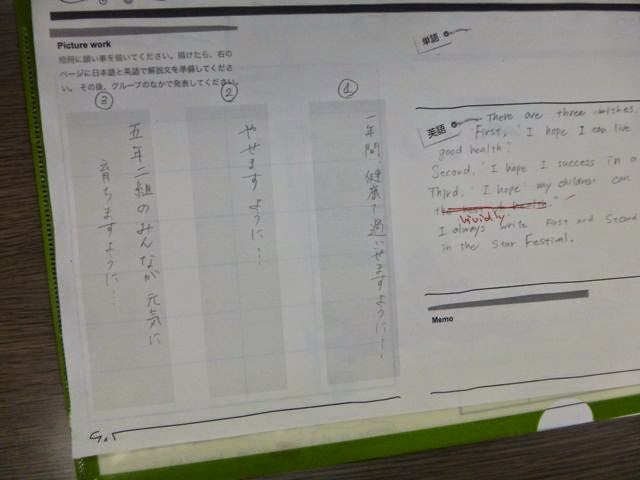 Picture work
短冊に願い事を描いてください。描けたら、右の
ページに日本語と英語で解説文を準備してくださ
い。その後、グループのなかで発表してください。
①
一年間、健康で過ごせますように…
②
やせますように…
③
五年二組のみんなが元気に
育ちますように…
単語
英語
There are three wishes.
First, "I hope I can live
good health"
Second, "I hope I success in a
Third, "I hope my children can
lividly
I always write First and Second
in the Star Festival.
Memo